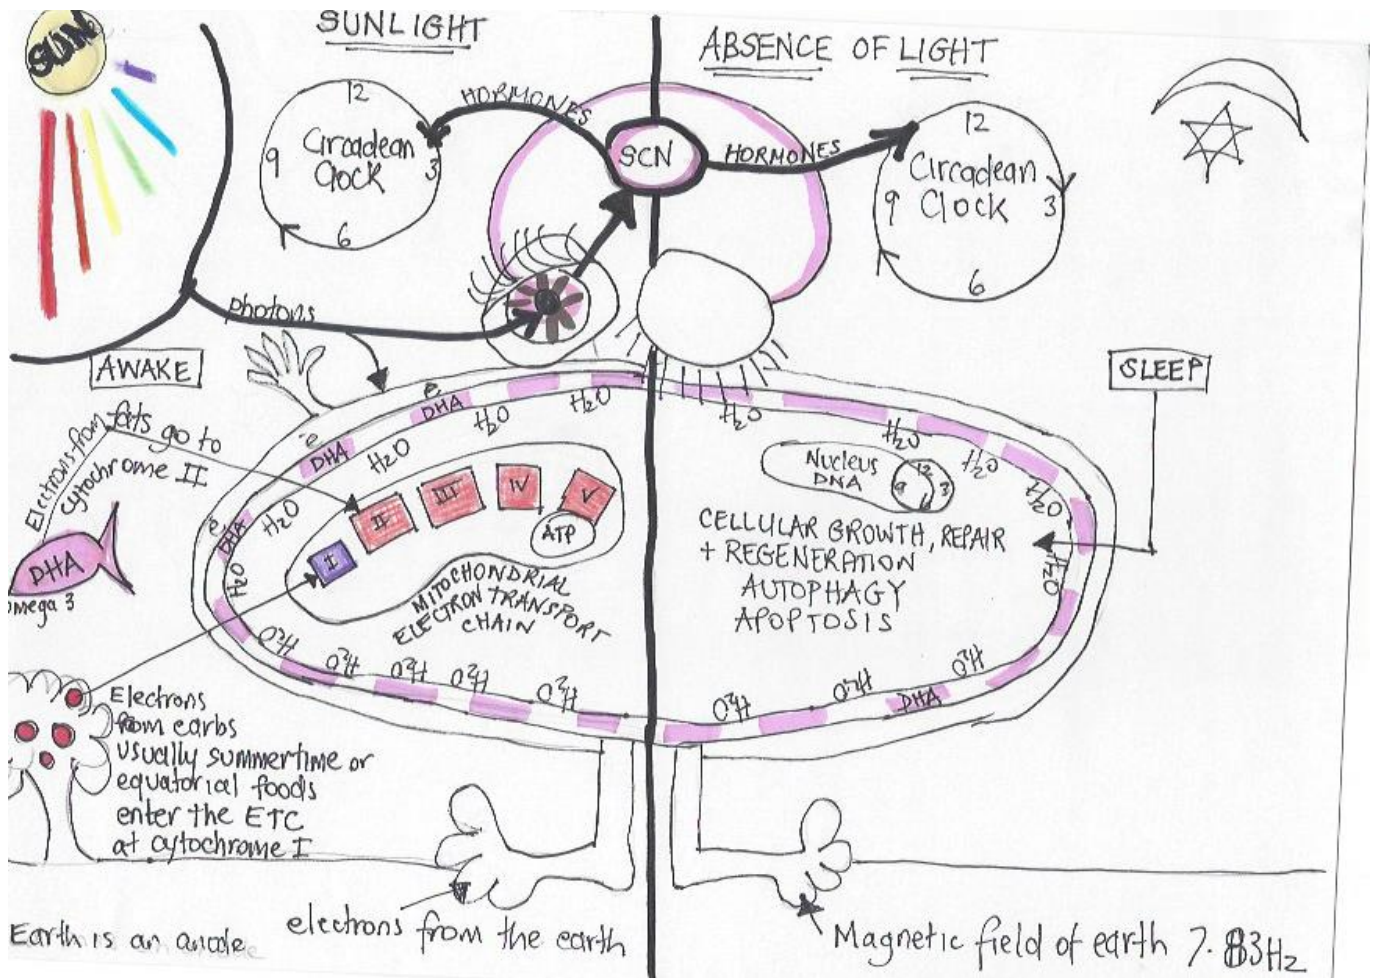 SUN
SUNLIGHT
ABSENCE OF LIGHT
HORMONES
SCN
HORMONES
12
Circadean
Clock
9
3
6
12
Circadean
Clock
9
3
6
photons
AWAKE
SLEEP
Electrons from fats go to
cytochrome II
DHA
omega 3
e
DHA
H2O
H2O
e
DHA
H2O
e
DHA
H2O
H2O
H2O
H2O
H2O
H2O
H2O
I
II
III
IV
V
ATP
MITOCHONDRIAL
ELECTRON TRANSPORT
CHAIN
H2O
H2O
H2O
H2O
H2O
H2O
H2O
H2O
DHA
Nucleus
DNA
12
9
3
6
CELLULAR GROWTH, REPAIR
+ REGENERATION
AUTOPHAGY
APOPTOSIS
Electrons
from carbs
usually summertime or
equatorial foods
enter the ETC
at cytochrome I
Earth is an anode
electrons from the earth
Magnetic field of earth 7.83Hz